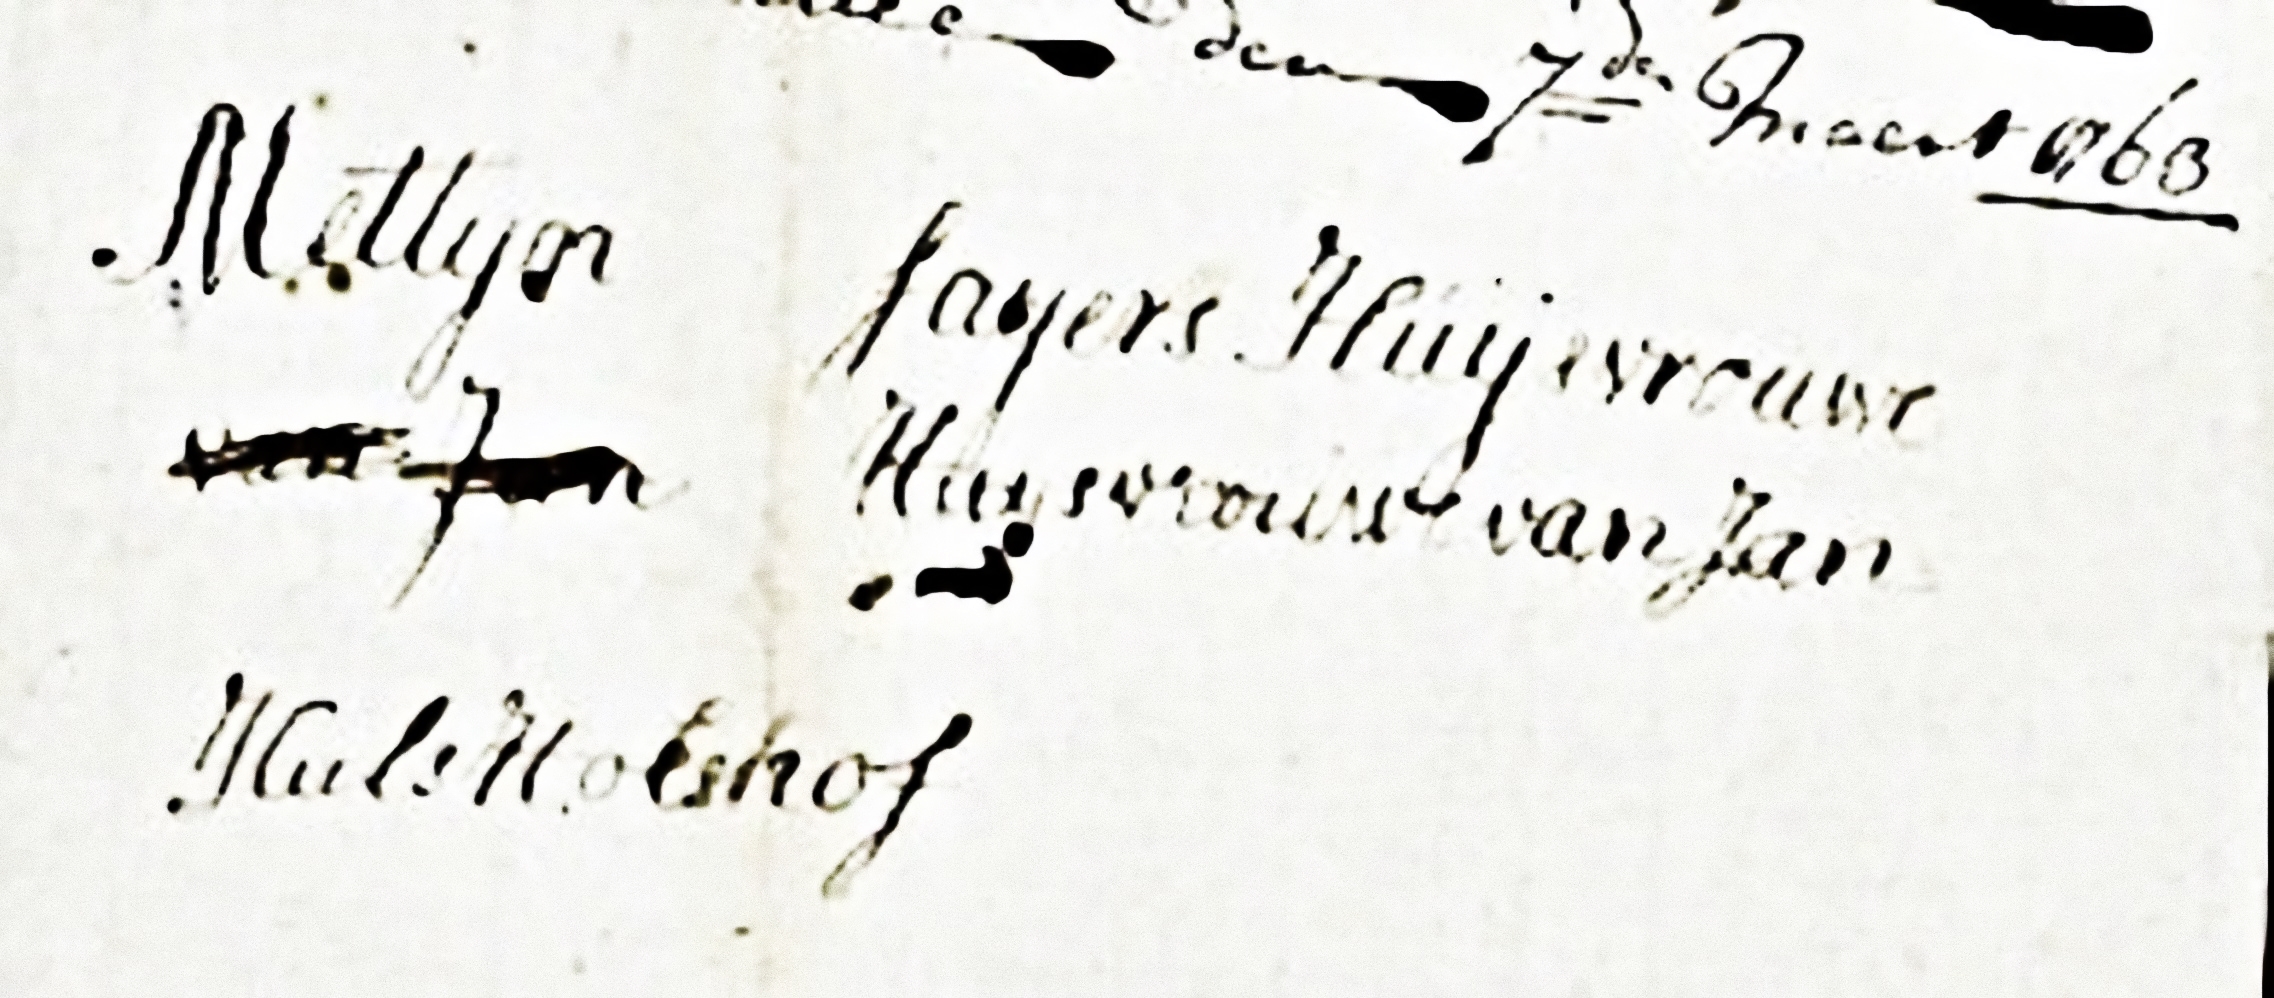 den 7den Maert 1763
Mettyn Jayers Huijsvrouwe
Huysvrouwe van Jan
Huls Holshof